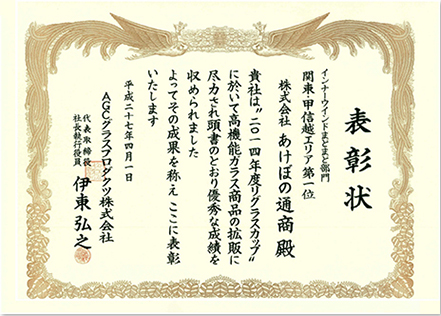 表彰状
インナーウインドまどまど部門
関東・甲信越エリア第一位
株式会社 あけぼの通商 殿
貴社は"二〇一四年度リグラスカップ"
に於いて高機能ガラス商品の拡販に
尽力され頭書のとおり優秀な成績を
収められました
よってその成果を称え ここに表彰
いたします
平成二十七年四月一日
AGCグラスプロダクツ株式会社
代表取締役
社長執行役員 伊東弘之